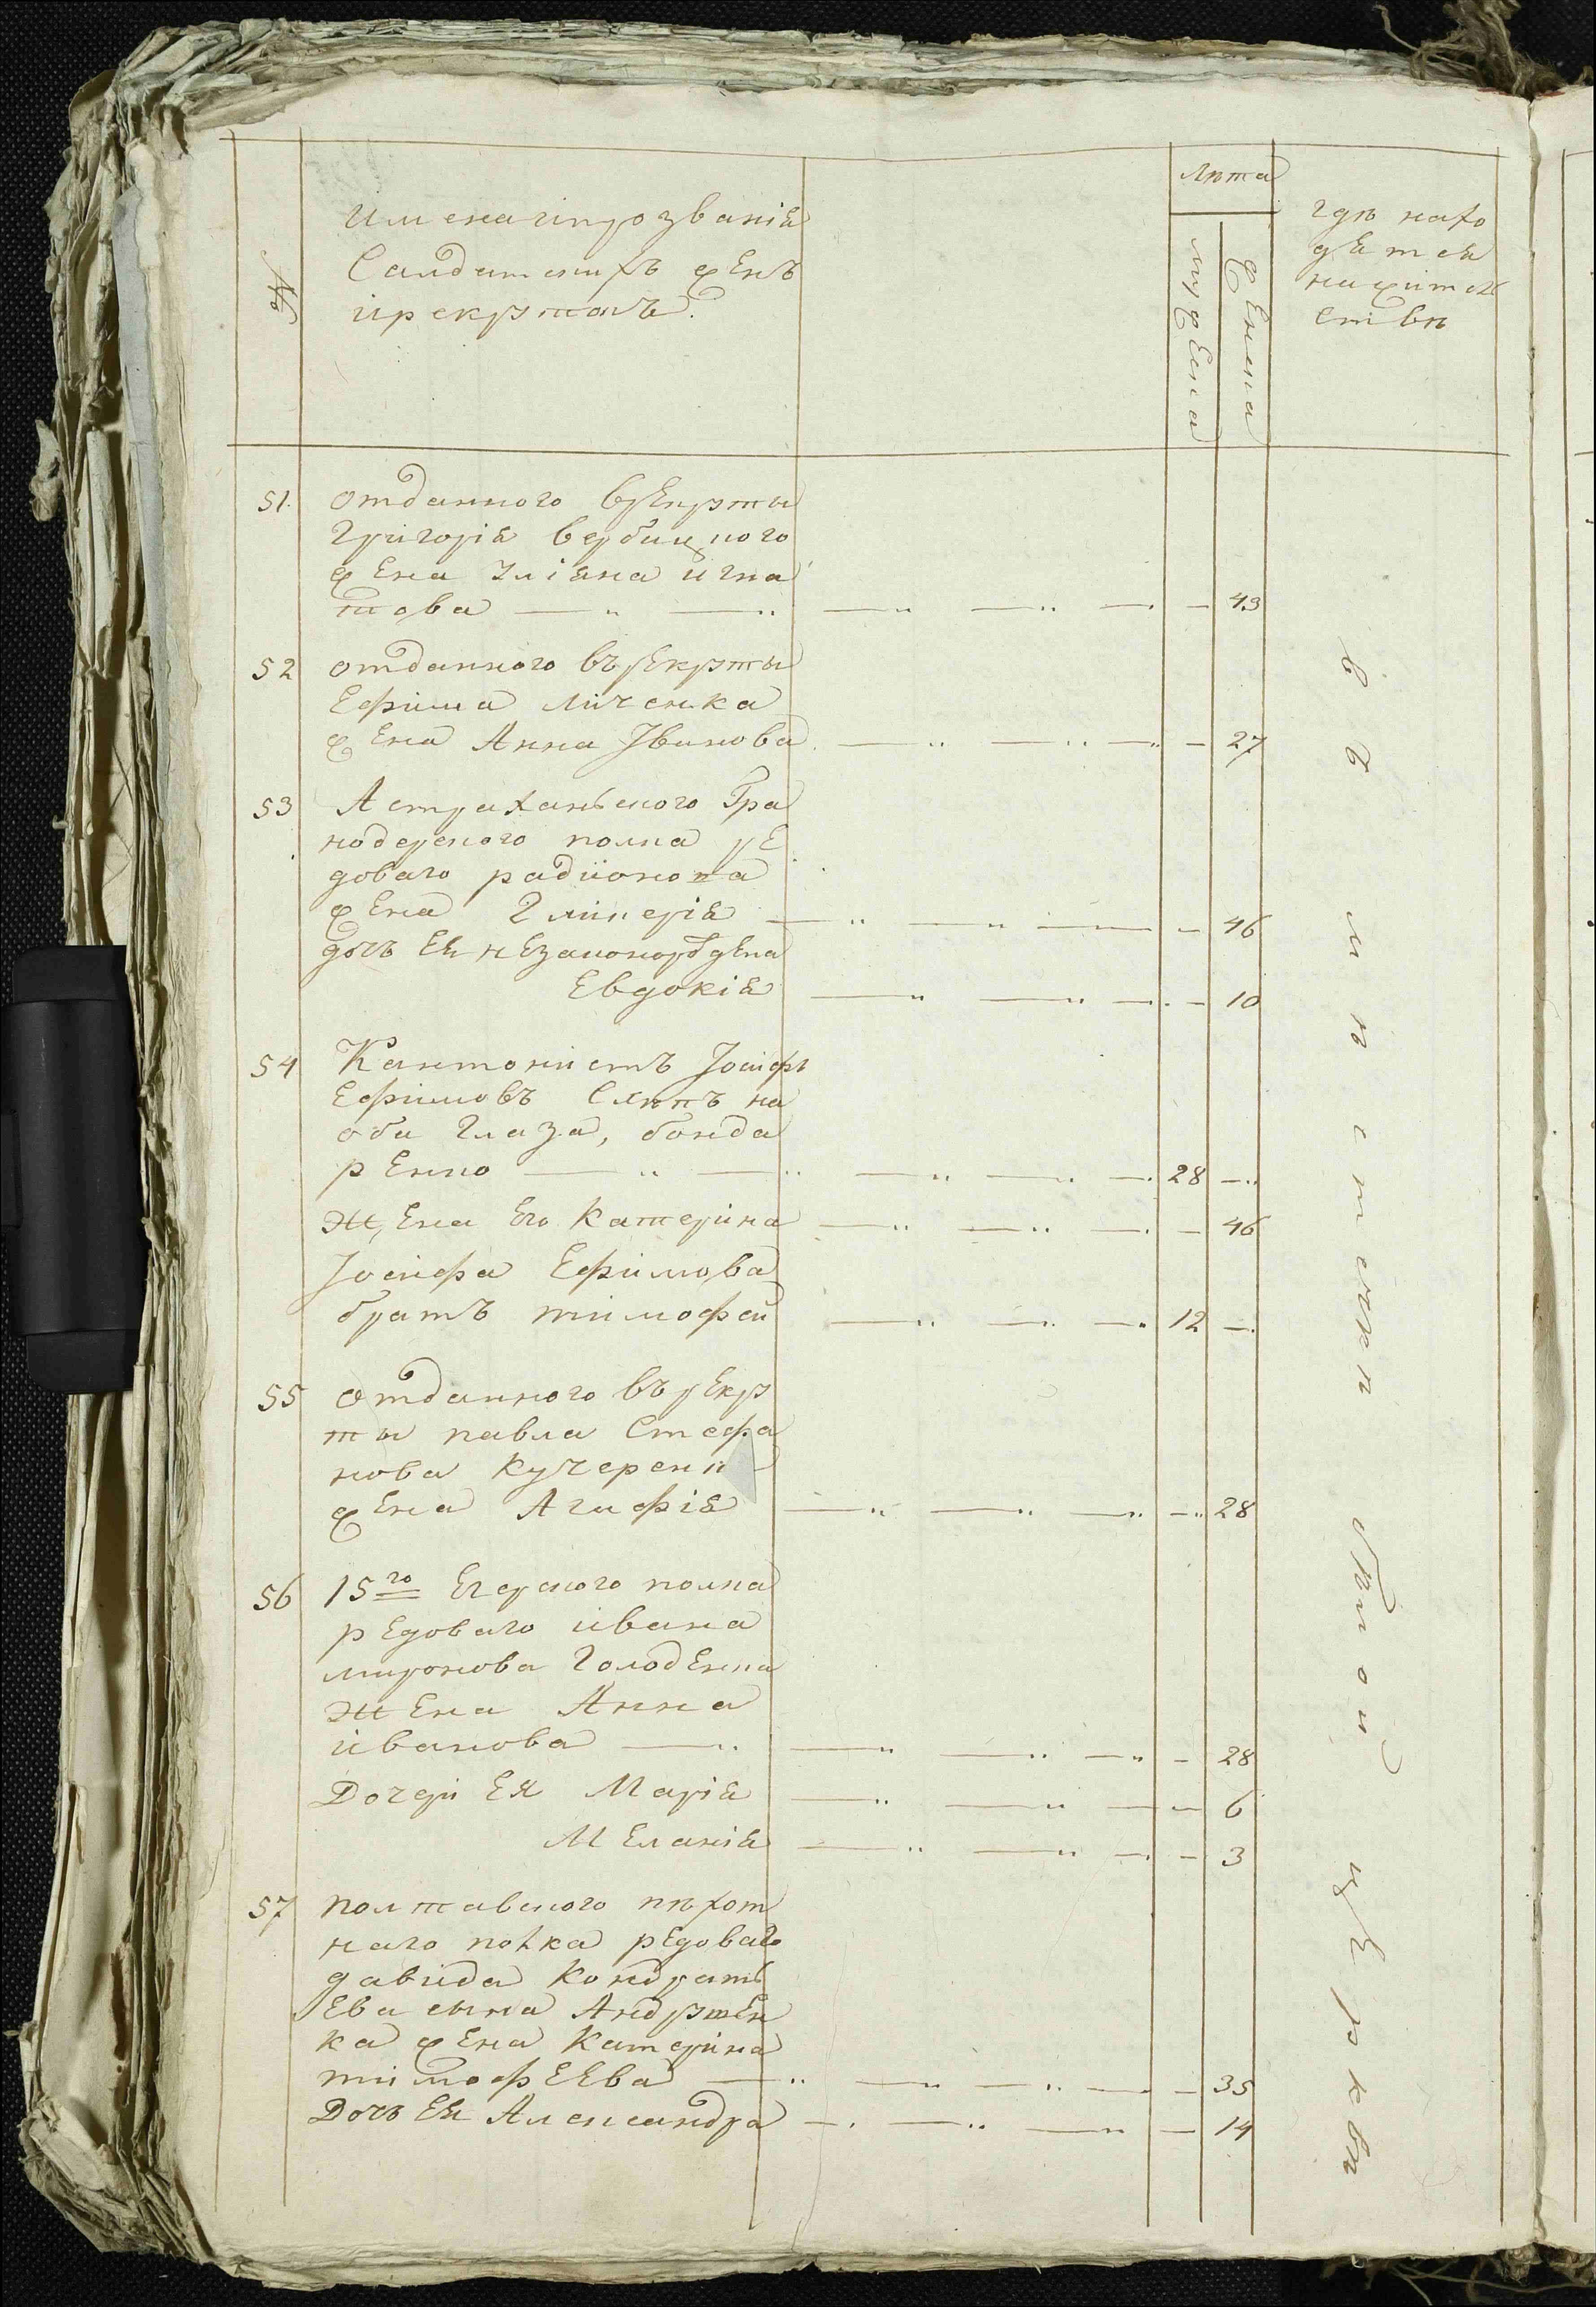 №
Имена іпрозванія
Салдатскихъ женъ
ірекрутовъ.
Лѣта
мужеска
женска
гдѣ нахо
дятся
нажител
ствѣ
51. отданного врекруты
Григорія
жена Уліяна Игна
това — — — — — — 43
52 отданного въ рекруты
Ефима Личенка
жена Анна Іванова — — — — 27
53 Астраханьского Гра
нодерского полка ре
доваго радіонова
жена Гликерія — — — — — 46
дочь Ея незаконорожденa
Евдокія — — — — 10
54 Кантонистъ Іосифъ
Ефимовъ Слѣпъ на
оба глаза, бонда
ренко — — — — — 28 —
Жена Его Катерина — — — — 46
Іосифа Ефимова
братъ тимофей — — — 12 —
55 отданного въ рекру
ты павла Стефа
нова Кучеренк
жена Агафія — — — — 28
56 15го Егерского полка
редоваго ивана
миронова Голоденка
Жена Анна
иванова — — — — — 28
Дочери Ея Марія — — — — 6
Меланія — — — — 3
57 полтавского пѣхот
наго полка редоваго
давида Кондрать
Ева сына Андрущен
ка жена Катерина
тимофЕЕва — — — — — 35
Дочь Ея Александра — — — — 14
въ мѣстечкѣ цЕрквѣ